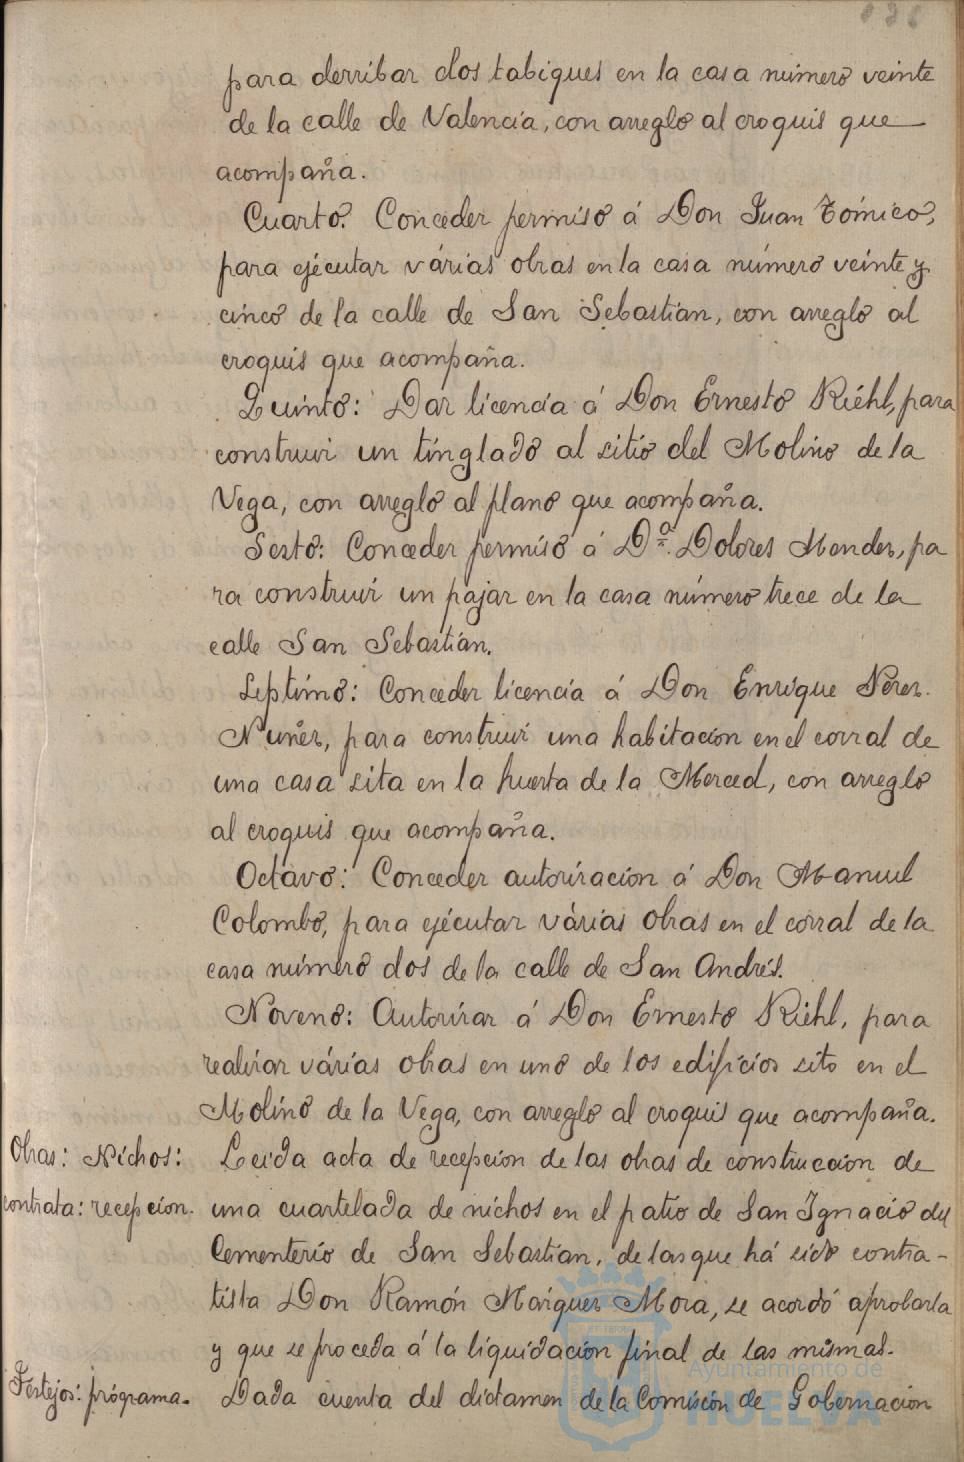 para derribar dos tabiques en la casa número veinte
de la calle de Valencia, con arreglo al croquis que
acompaña.
Cuarto. Conceder permiso á Don Juan Tómico,
para ejécutar várias obras en la casa número veinte y
cinco de la calle de San Sebastian, con arreglo al
croquis que acompaña.
Quinto: Dar licencia á Don Ernesto Riéhl, para
construir un tinglado al sitio del Molino de la
Vega, con arreglo al plano que acompaña.
Sesto: Conceder permiso á Dª. Dolores Mendez, pa
ra construir un pajar en la casa número trece de la
calle San Sebastián.
Septimo: Conceder licencia á Don Enrique Pérez
Nuñez, para construir una habitacion en el corral de
una casa sita en la huerta de la Merced, con arreglo
al croquis que acompaña.
Octavo: Conceder autorizacion á Don Manuel
Colombo, para ejécutar várias obras en el corral de la
casa número dos de la calle de San Andrés.
Noveno: Autorizar á Don Ernesto Riéhl, para
realizar várias obras en uno de los edificios sito en el
Molino de la Vega, con arreglo al croquis que acompaña.
Obras: Nichos: Leida acta de recepcion de las obras de construccion de
contrata: recepcion. una cuartelada de nichos en el patio de San Ignacio del
Cementerio de San Sebastian, de las que há sido contra-
tista Don Ramón Marquez Mora, se acordó aprobarla
y que se proceda á la liquidacion final de las mismas.
Festejos: prógrama. Dada cuenta del dictamen de la Comisión de Gobernacion
Ayuntamiento de
HUELVA